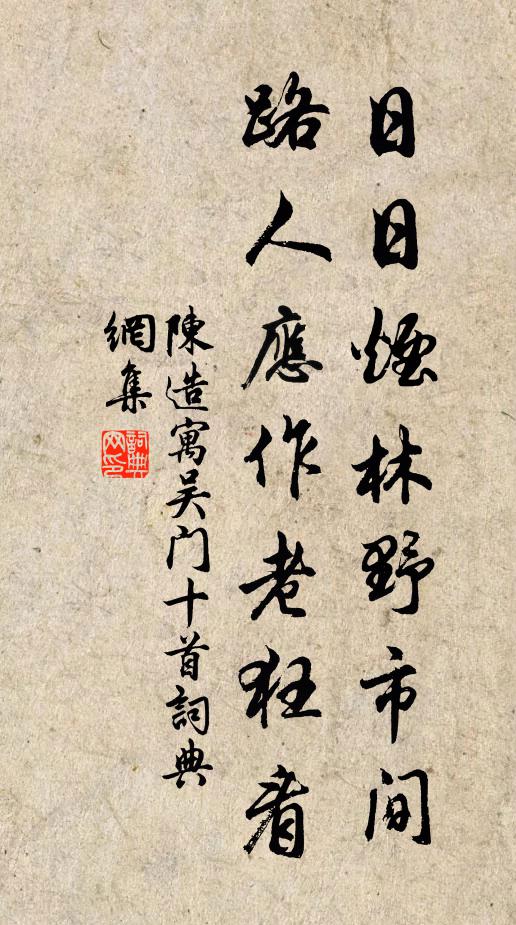 日日煙林野市間
路人應作老狂看
陳造寓吴门十首詞典
網集
詞典
网印